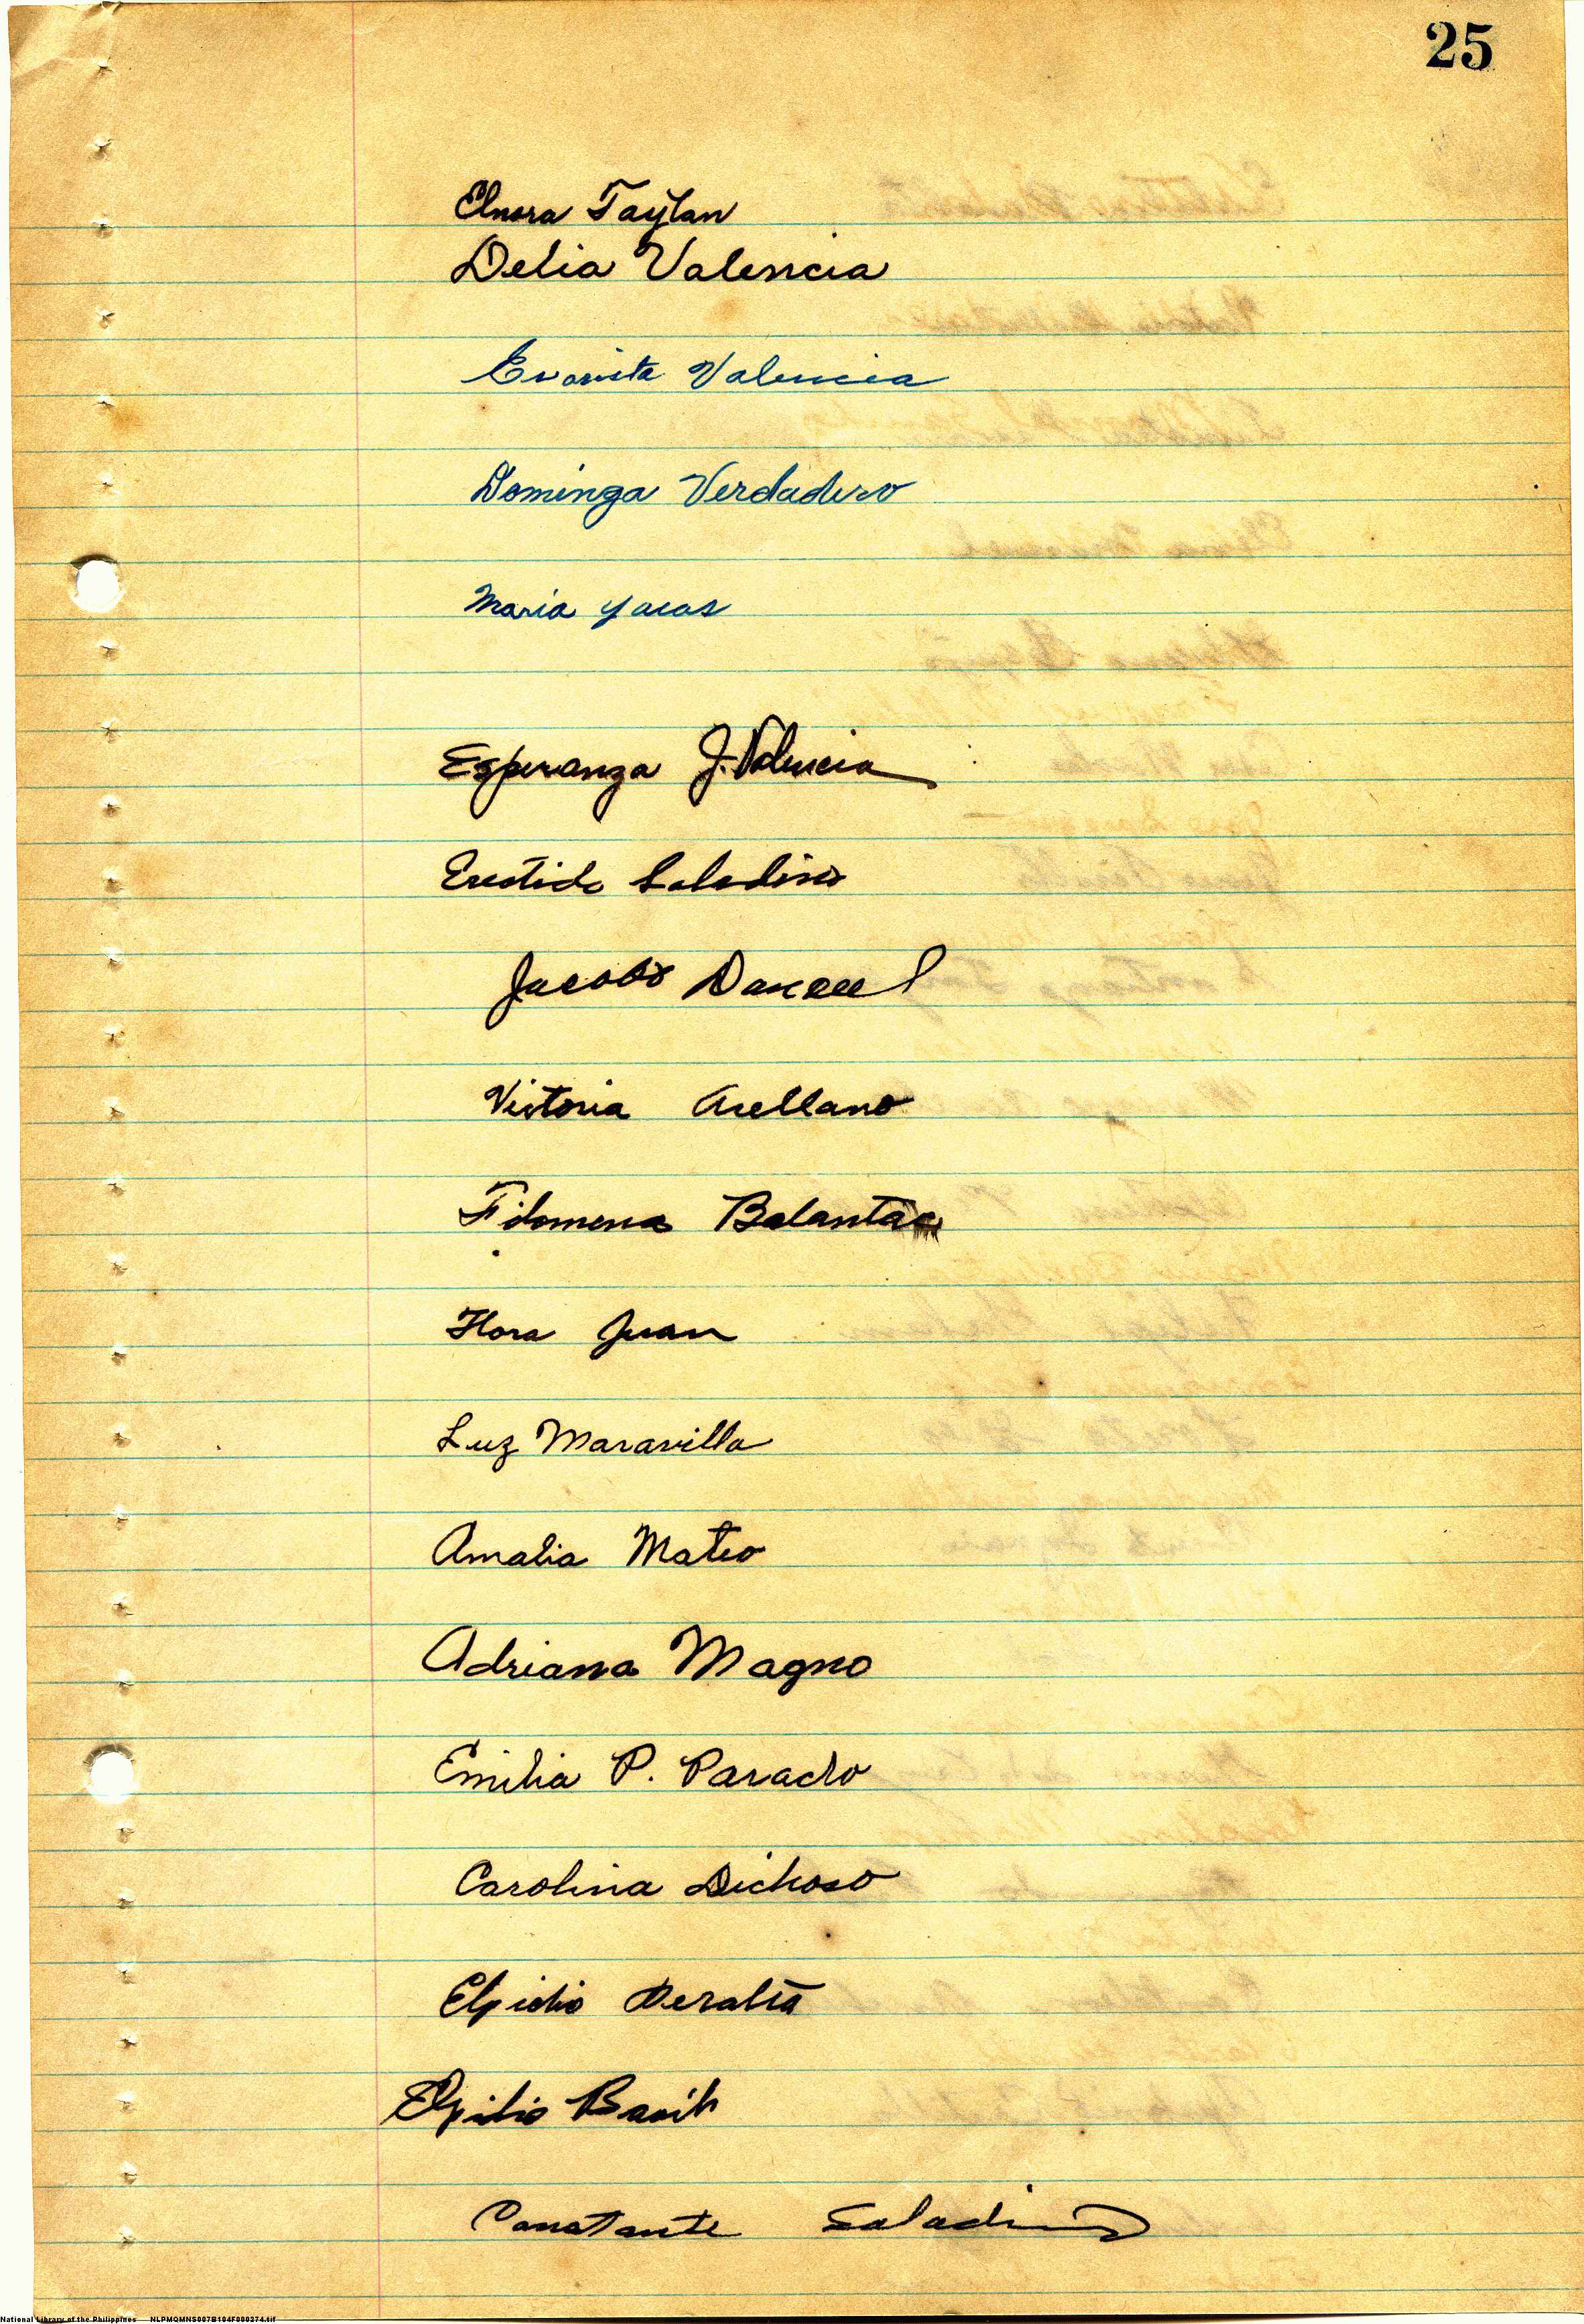 25
Elnora Taylan
Delia Valencia
Evarista Valencia
Dominga Verdadero
Maria Yacas
Esperanza J. Valencia
Saladino
Jacobo
Victoria Arellano
Filomena Balantac
Flora Juan
Luz Maravilla
Amalia Mateo
Adriana Magno
Emilia P. Parado
Carolina Dichoso
Elpidio Peralta
Elpidio
Constante Saladino
National Library of the Philippines NLPMQMNS007B104F000374.tif